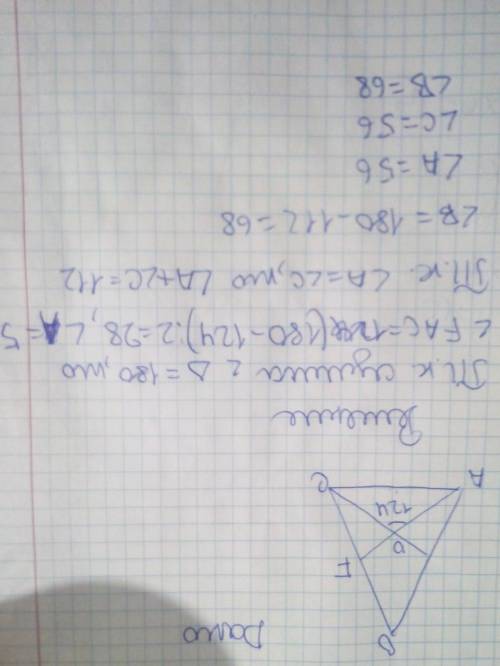 Дано
B
F
O
124
A
C
Решение
Т.к сумма ∠ Δ=180, то
∠FAC=(180-124):2=28, ∠A=5
Т.к. ∠A=∠C, то ∠A+∠C=112
∠B=180-112=68
∠A=56
∠C=56
∠B=68